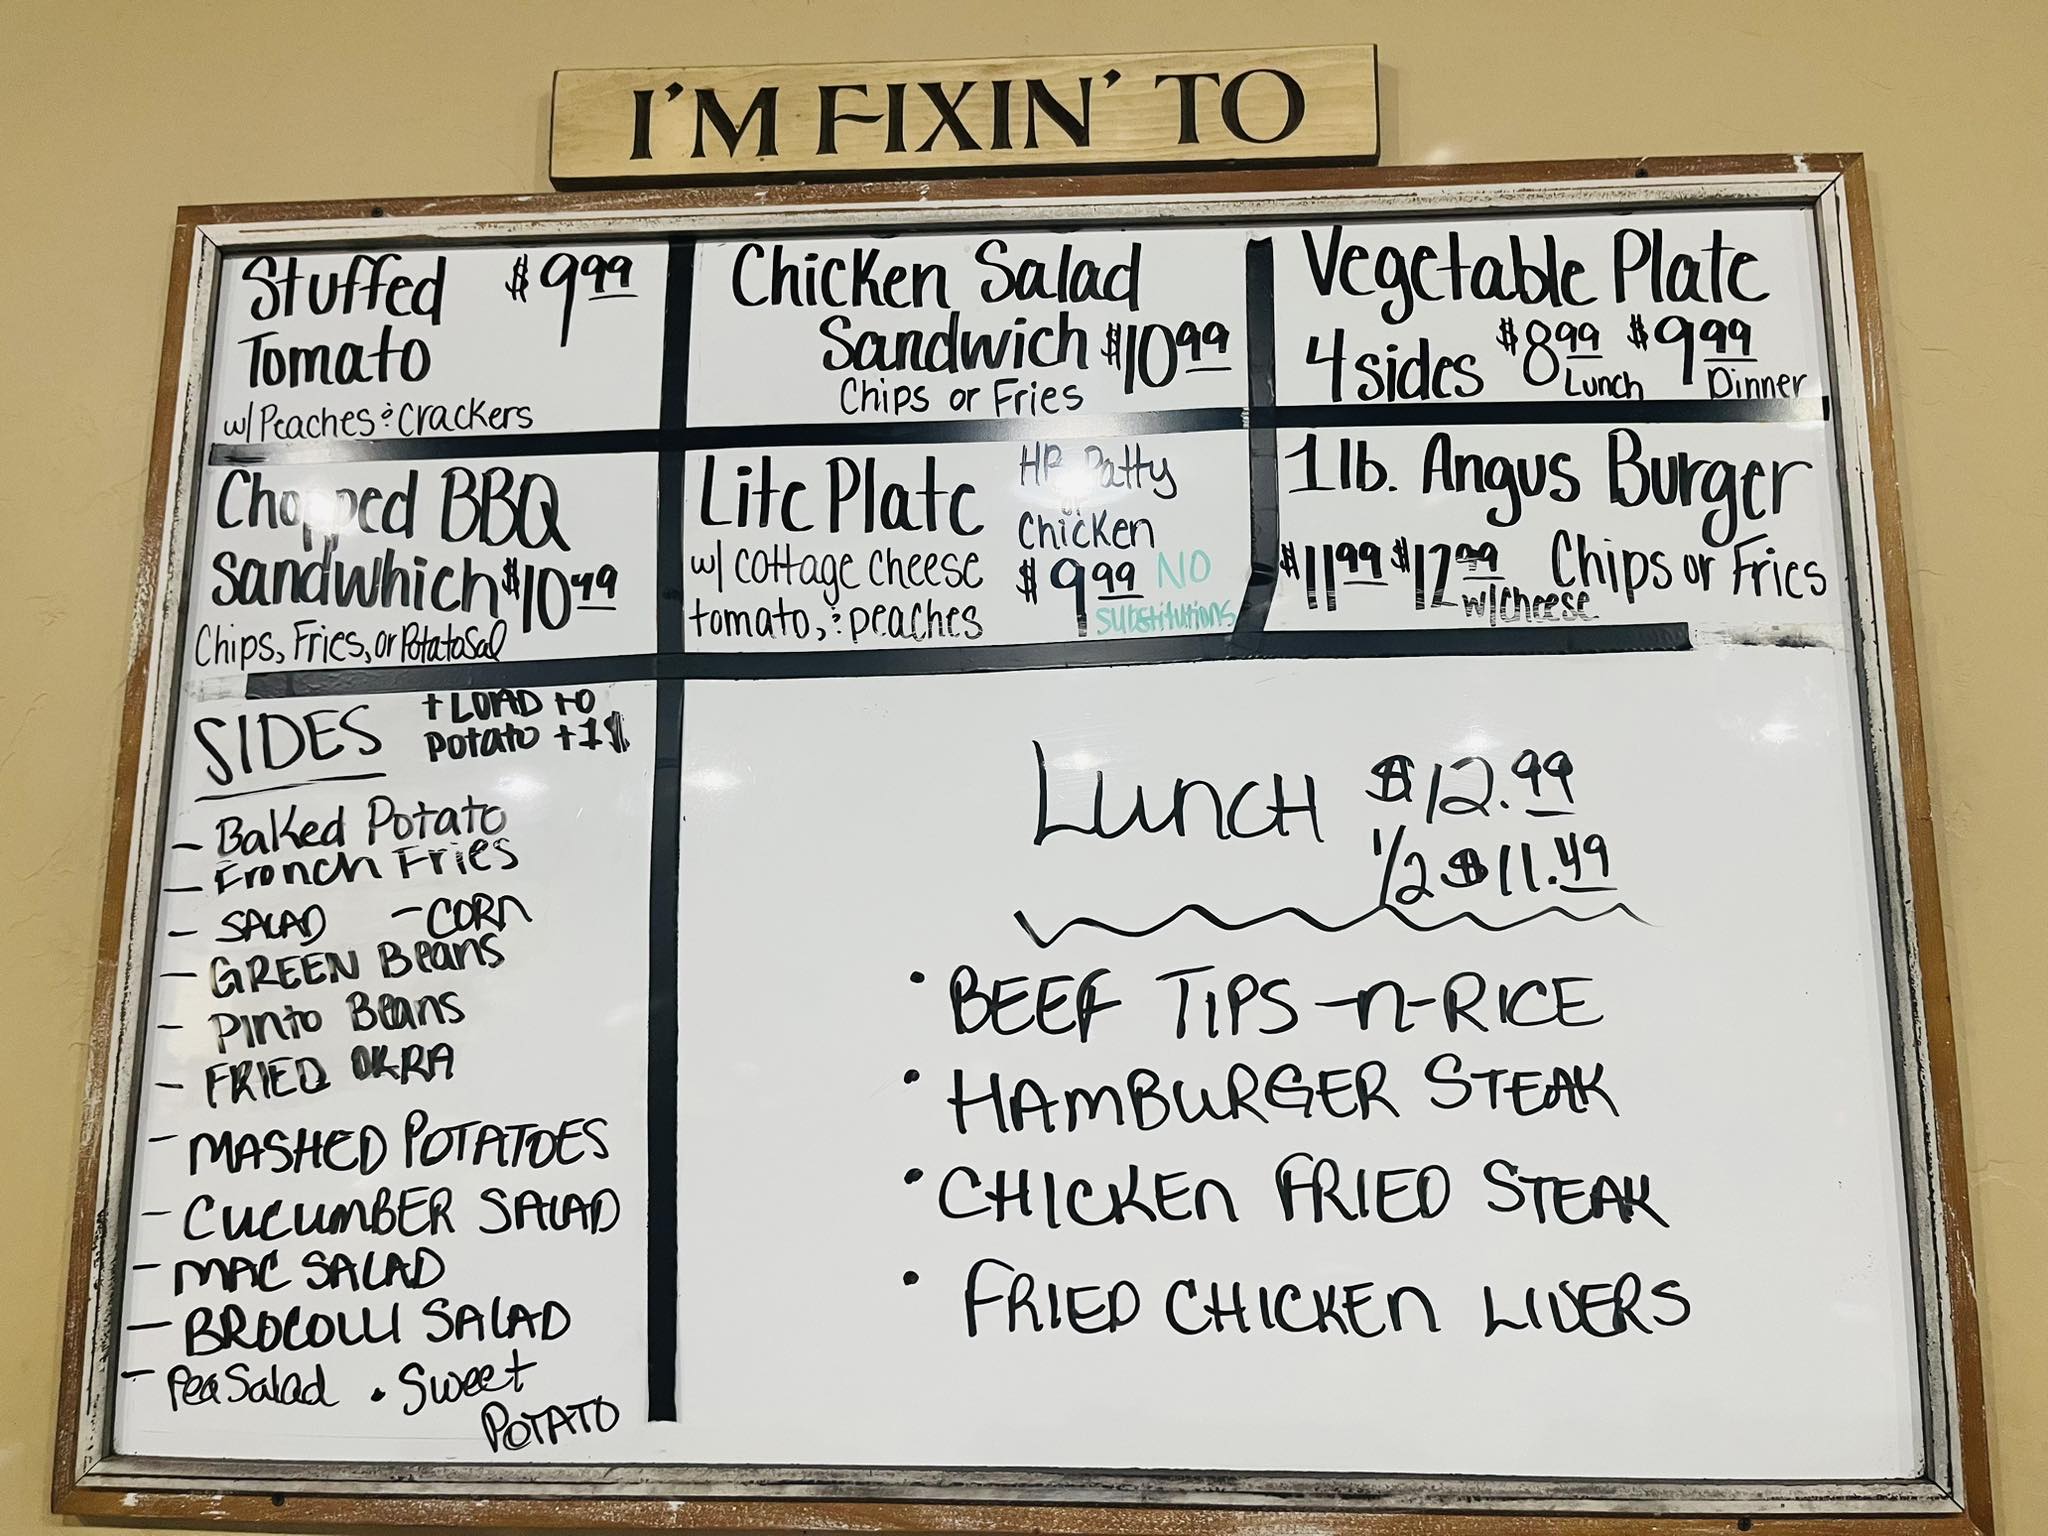 I'M FIXIN' TO
Stuffed $9.99
Tomato
w/ Peaches & Crackers
Chicken Salad
Sandwich $10.99
Chips or Fries
Vegetable Plate
4 sides $8.99 Lunch $9.99 Dinner
Chopped BBQ
Sandwhich $10.49
Chips, Fries, or Potato Sal
Lite Plate
w/ cottage cheese
tomato, & peaches
HB Patty
or
Chicken
$9.99 NO
substitutions
1 lb. Angus Burger
$11.99 $12.99 w/cheese Chips or Fries
SIDES
+ LOAD to
potato +1$
- Baked Potato
- French Fries
- SALAD - CORN
- GREEN Beans
- Pinto Beans
- FRIED OKRA
- MASHED POTATOES
- CUCUMBER SALAD
- MAC SALAD
- BROCOLLI SALAD
- Pea Salad • Sweet
POTATO
LUNCH $12.99
1/2 $11.49
• BEEF TIPS -n- RICE
• HAMBURGER STEAK
• CHICKEN FRIED STEAK
• FRIED CHICKEN LIVERS